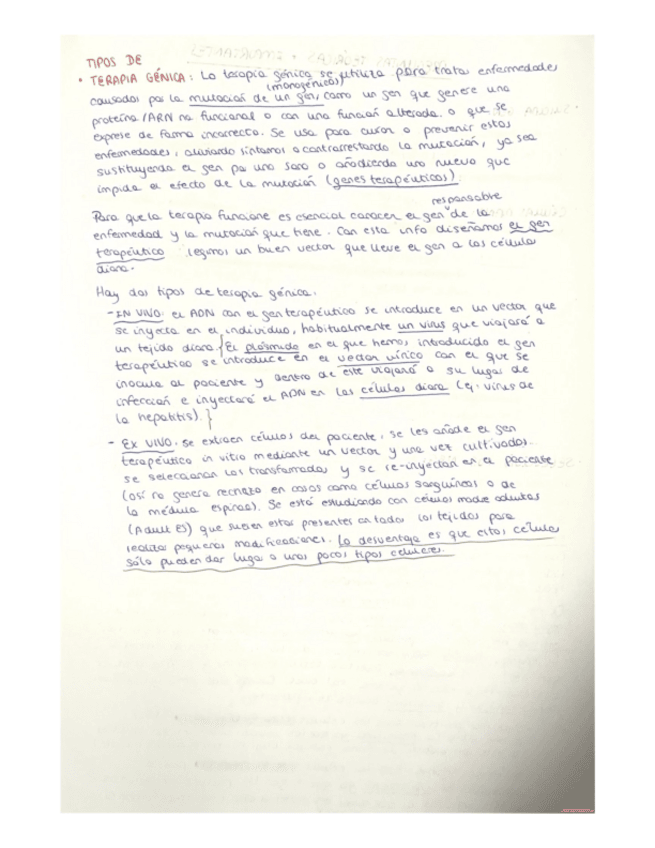 TIPOS DE
• TERAPIA GÉNICA: La terapia génica se utiliza para tratar enfermedades
(monogénicas)
causadas por la mutación de un gen, como un gen que genere una
proteína/ARN no funcional o con una función alterada o que se
exprese de forma incorrecta. Se usa para curar o prevenir estas
enfermedades, aliviando síntomas o contrarrestando la mutación, ya sea
sustituyendo el gen por uno sano o añadiendo uno nuevo que
impida el efecto de la mutación (genes terapéuticos).
responsable
Para que la terapia funcione es esencial conocer el gen de la
enfermedad y la mutación que tiene. Con esta info diseñamos el gen
terapéutico legimos un buen vector que lleve el gen a las células
diana.
Hay dos tipos de terapia génica.
- IN VIVO: el ADN con el gen terapéutico se introduce en un vector que
se inyecta en el individuo, habitualmente un virus que viajará a
un tejido diana. {El plásmido en el que hemos introducido el gen
terapéutico se introduce en el vector vírico con el que se
inocula al paciente y dentro de este viajará a su lugar de
infección e inyectará el ADN en las células diana (ej: virus de
la hepatitis).}
- EX VIVO: se extraen células del paciente, se les añade el gen
terapéutico in vitro mediante un vector y una vez cultivadas
se seleccionan las transformadas y se re-inyectan en el paciente
(así no genera rechazo en casos como células sanguíneas o de
la médula espinal). Se está estudiando con células madre adultas
(Adult ES) que suelen estar presentes en todos los tejidos para
realizar pequeñas modificaciones. La desventaja es que estas células
sólo pueden dar lugar a unos pocos tipos celulares.